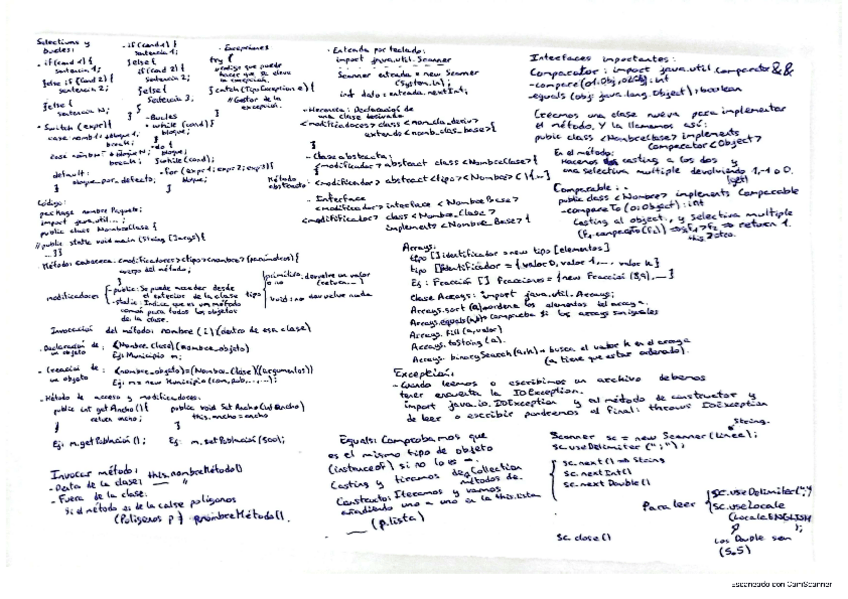 Selectivas y
bucles:
- if(cond 1) {
sentencia 1;
}else if (cond 2) {
sentencia 2;
}else {
sentencia N;
}
- Switch (expr){
case nombre 1: bloque 1;
break;
case nombre N: bloque N;
break;
default:
bloque_por_defecto;
}
- if(cond 1) {
sentencia 1;
}else {
if(cond 2) {
sentencia 2;
}else {
Sentencia 3,
}
- Bucles
- while (cond) {
bloque;
}
- do {
bloque;
}while(cond);
- for (expr1; expr2; expr3){
bloque;
}
- Excepciones
try {
código que puede
hacer que se eleve
la excepción.
} catch (TipoException e) {
//Gestor de la
excepción.
}
- Entrada por teclado:
import java.util.Scanner
Scanner entrada = new Scanner
(System.in);
int dato = entrada.nextInt;
- Herencia: Declaración de
una clase derivada
<modificadores> class <nom_cla_deriv>
extends <nomb_clas_base>{
}
- Clase abstracta:
<modificador> abstract class <NombreClase>{
}
Método
abstracto: <modificador> abstract <tipo> <Nombre> () {...}
- Interface
<modificador> interface <NombreBase>
<modificador> class <Nombre_Clase>
implements <Nombre_Base> {
}
Interfaces importantes:
Comparator: import java.util.comparator
- compare (o1:Obj, o2:Obj): int
- equals (obj: java.lang.Object): boolean
Creamos una clase nueva para implementar
el método, y la llamamos así:
public class <NombreClase> implements
Comparator <Object>
En el método:
Hacemos casting a los dos y
una selectiva multiple devolviendo 1, -1 o 0.
Comparable:
public class <Nombre> implements Comparable
- compareTo (o:Object): int
Casting al object, y selectiva multiple
Código:
package nombre Paquete;
import java.util...;
public class NombreClase {
//public static void main (String []args){
...}}
- Método: cabecera <modificadores> <tipo> <nombre> (parámetros) {
cuerpo del método;
}
modificadores
- public: Se puede acceder desde
el exterior de la clase
- static: Indica que es un método
común para todos los objetos
de la clase.
tipo
primitivo o no: devuelve un valor
(return...)
void: no devuelve nada
Invocación del método: nombre (i) (dentro de esa clase)
- Declaración de un objeto: (Nombre_clase) (nombre_objeto)
Ej: Municipio m;
- Creación de un objeto: (nombre_objeto) = (Nombre_Clase) ((argumentos))
- Método de acceso y modificadores:
public int getAncho () {
return ancho;
}
public void SetAncho (int ancho)
this.ancho = ancho
Ej: m.getPoblación ();
Ej: m.setPoblación (500);
Arrays:
tipo [] identificador = new tipo [elementos]
tipo [] identificador = {valor 0, valor 1, ... valor k}
Ej: Fracción [] fracciones = {new Fracción (8,9), ...}
Clase Arrays: import java.util.Arrays;
Arrays.sort (a) ordena los elementos del array.
Arrays.equals(a,b) → comprueba si los arrays son iguales
Arrays.fill (a,valor)
Arrays.toString (a).
Arrays.binarySearch (a,k) → busca el valor k en el array a
(a tiene que estar ordenado).
Exception:
- Cuando leemos o escribimos un archivo debemos
tener en cuenta la IOException.
import java.io.IOException y al método de constructor y
de leer o escribir pondremos al final: throws IOException
Invocar método:
- Dentro de la clase: this.nombreMétodo()
- Fuera de la clase.
Si el método es de la calse polígonos
(Polígonos p) p.nombreMétodo().
Equals: Comprobamos que
es el mismo tipo de objeto
(instanceof) si no lo es
Casting y tiramos de Collection
métodos de.
Constructor: Iteramos y vamos
añadiendo uno a uno en la this.lista
(p.lista)
String.
Scanner sc = new Scanner (linea);
sc.useDelimiter (";");
sc.next() → String
sc.nextInt()
sc.nextDouble()
Para leer
sc.useDelimiter(";")
sc.useLocale
(Locale.ENGLISH
);
Los Double son
(5.5)
sc.close()
Escaneado con CamScanner